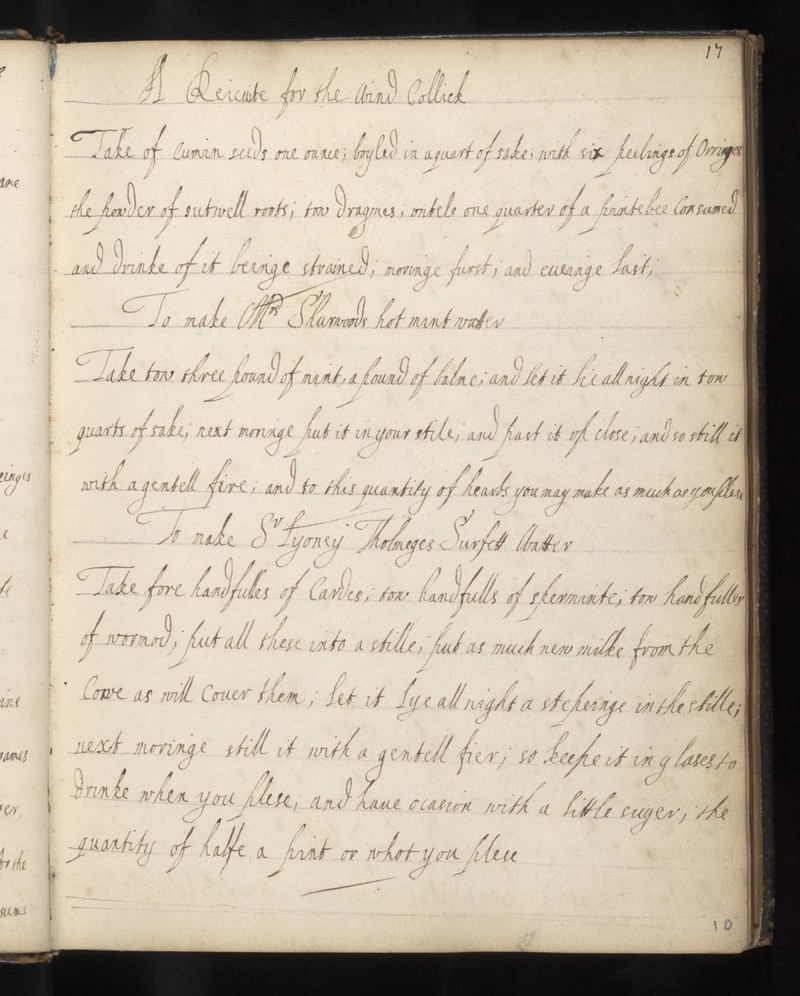 17
A Reicuite for the Wind Collick
Take of Cumin seeds one ounce; boyled in a quart of sake; with six peelings of Orringes
the powder of setwell roots; tow dragmes; untele one quarter of a pinte bee Consumed
and drinke of it beeinge strained; moringe furst; and eueninge last;
To make Mrs Shurwoods hot mint watter
Take tow three pound of mint, a pound of balme; and let it lie all night in tow
quarts of sake; next moringe put it in your stile; and past it up close; and so still it
with a gentell fire; and to this quantity of hearbs you may make as much as you plese
To make Sr Lyoney Tholmeges Surfett Watter
Take fore handfulles of Cardes; tow handfulls of sperminte; tow handfulles
of wormod; put all these into a stille; put as much new milke from the
Cowe as will Couer them; let it lye all night a stepeinge in the stille;
next moringe still it with a gentell fier; so keepe it in glases to
drinke when you plese; and haue ocasion with a little suger; the
quantity of halfe a pint or whot you plese
10